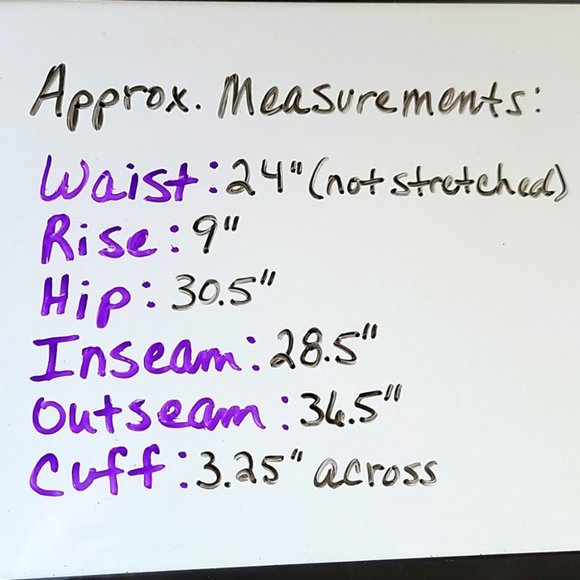 Approx. Measurements:
Waist: 24" (not stretched)
Rise: 9"
Hip: 30.5"
Inseam: 28.5"
Outseam: 36.5"
Cuff: 3.25" across